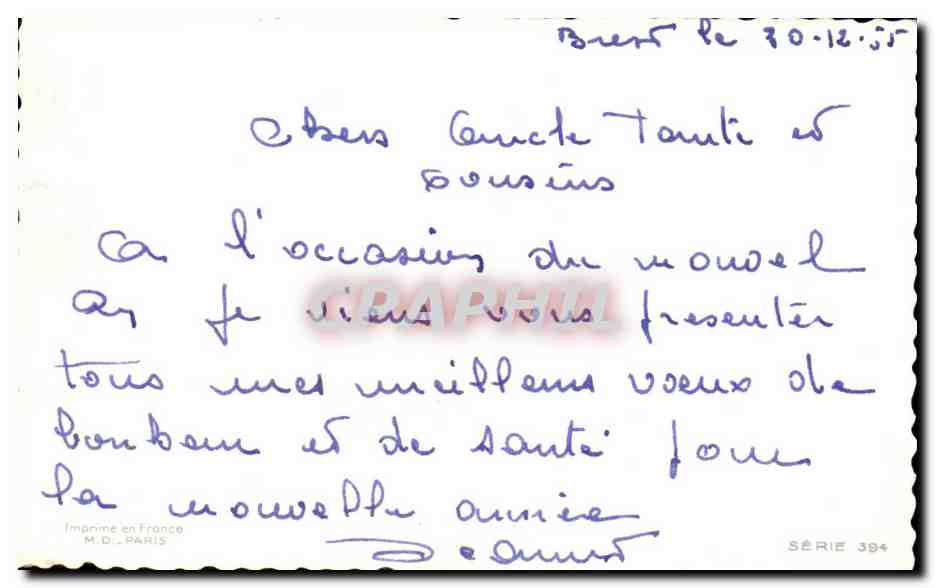 Brest le 30.12.55
Chers Oncle Tante et
cousins
A l'occasion du nouvel
An je viens vous presenter
tous mes meilleurs voeux de
bonheur et de santé pour
la nouvelle année
CPAPHIL
Imprimé en France
M.D. - PARIS
SÉRIE 394